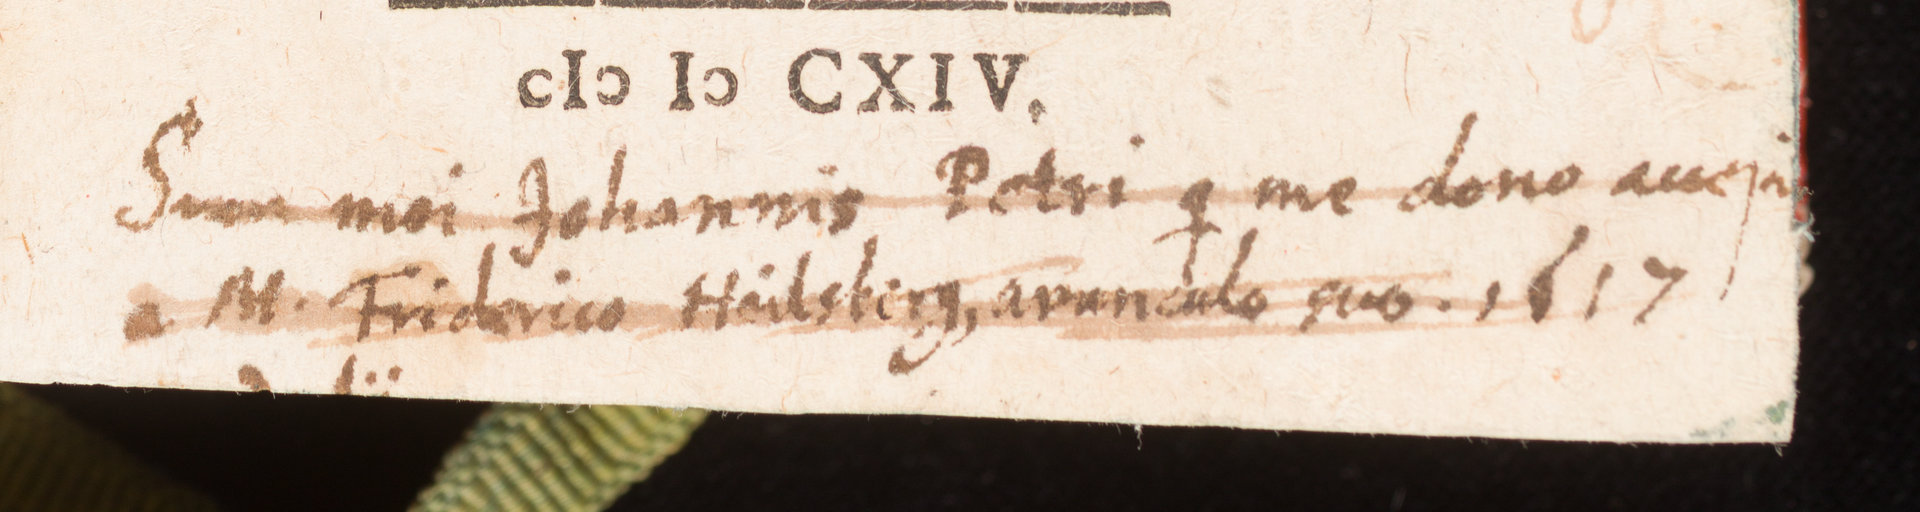 cIɔ Iɔ CXIV.
Sum mei Johannis Petri q me dono accepi
a M. Friderico Heilsberg, avunculo suo. 1617